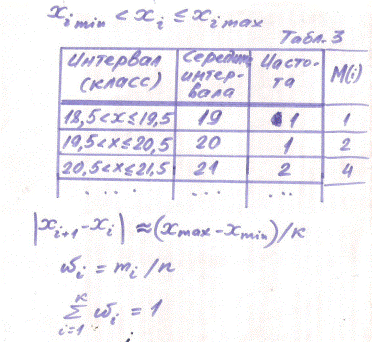 x_i min < x_i ≤ x_i max
Табл. 3
Интервал (класс) | Середина интервала | Частота | M(i)
18,5<x≤19,5 | 19 | 1 | 1
19,5<x≤20,5 | 20 | 1 | 2
20,5<x≤21,5 | 21 | 2 | 4
... | ... | ...
|x_{i+1} - x_i| ≈ (x_max - x_min)/к
ω_i = m_i / n
∑_{i=1}^{к} ω_i = 1